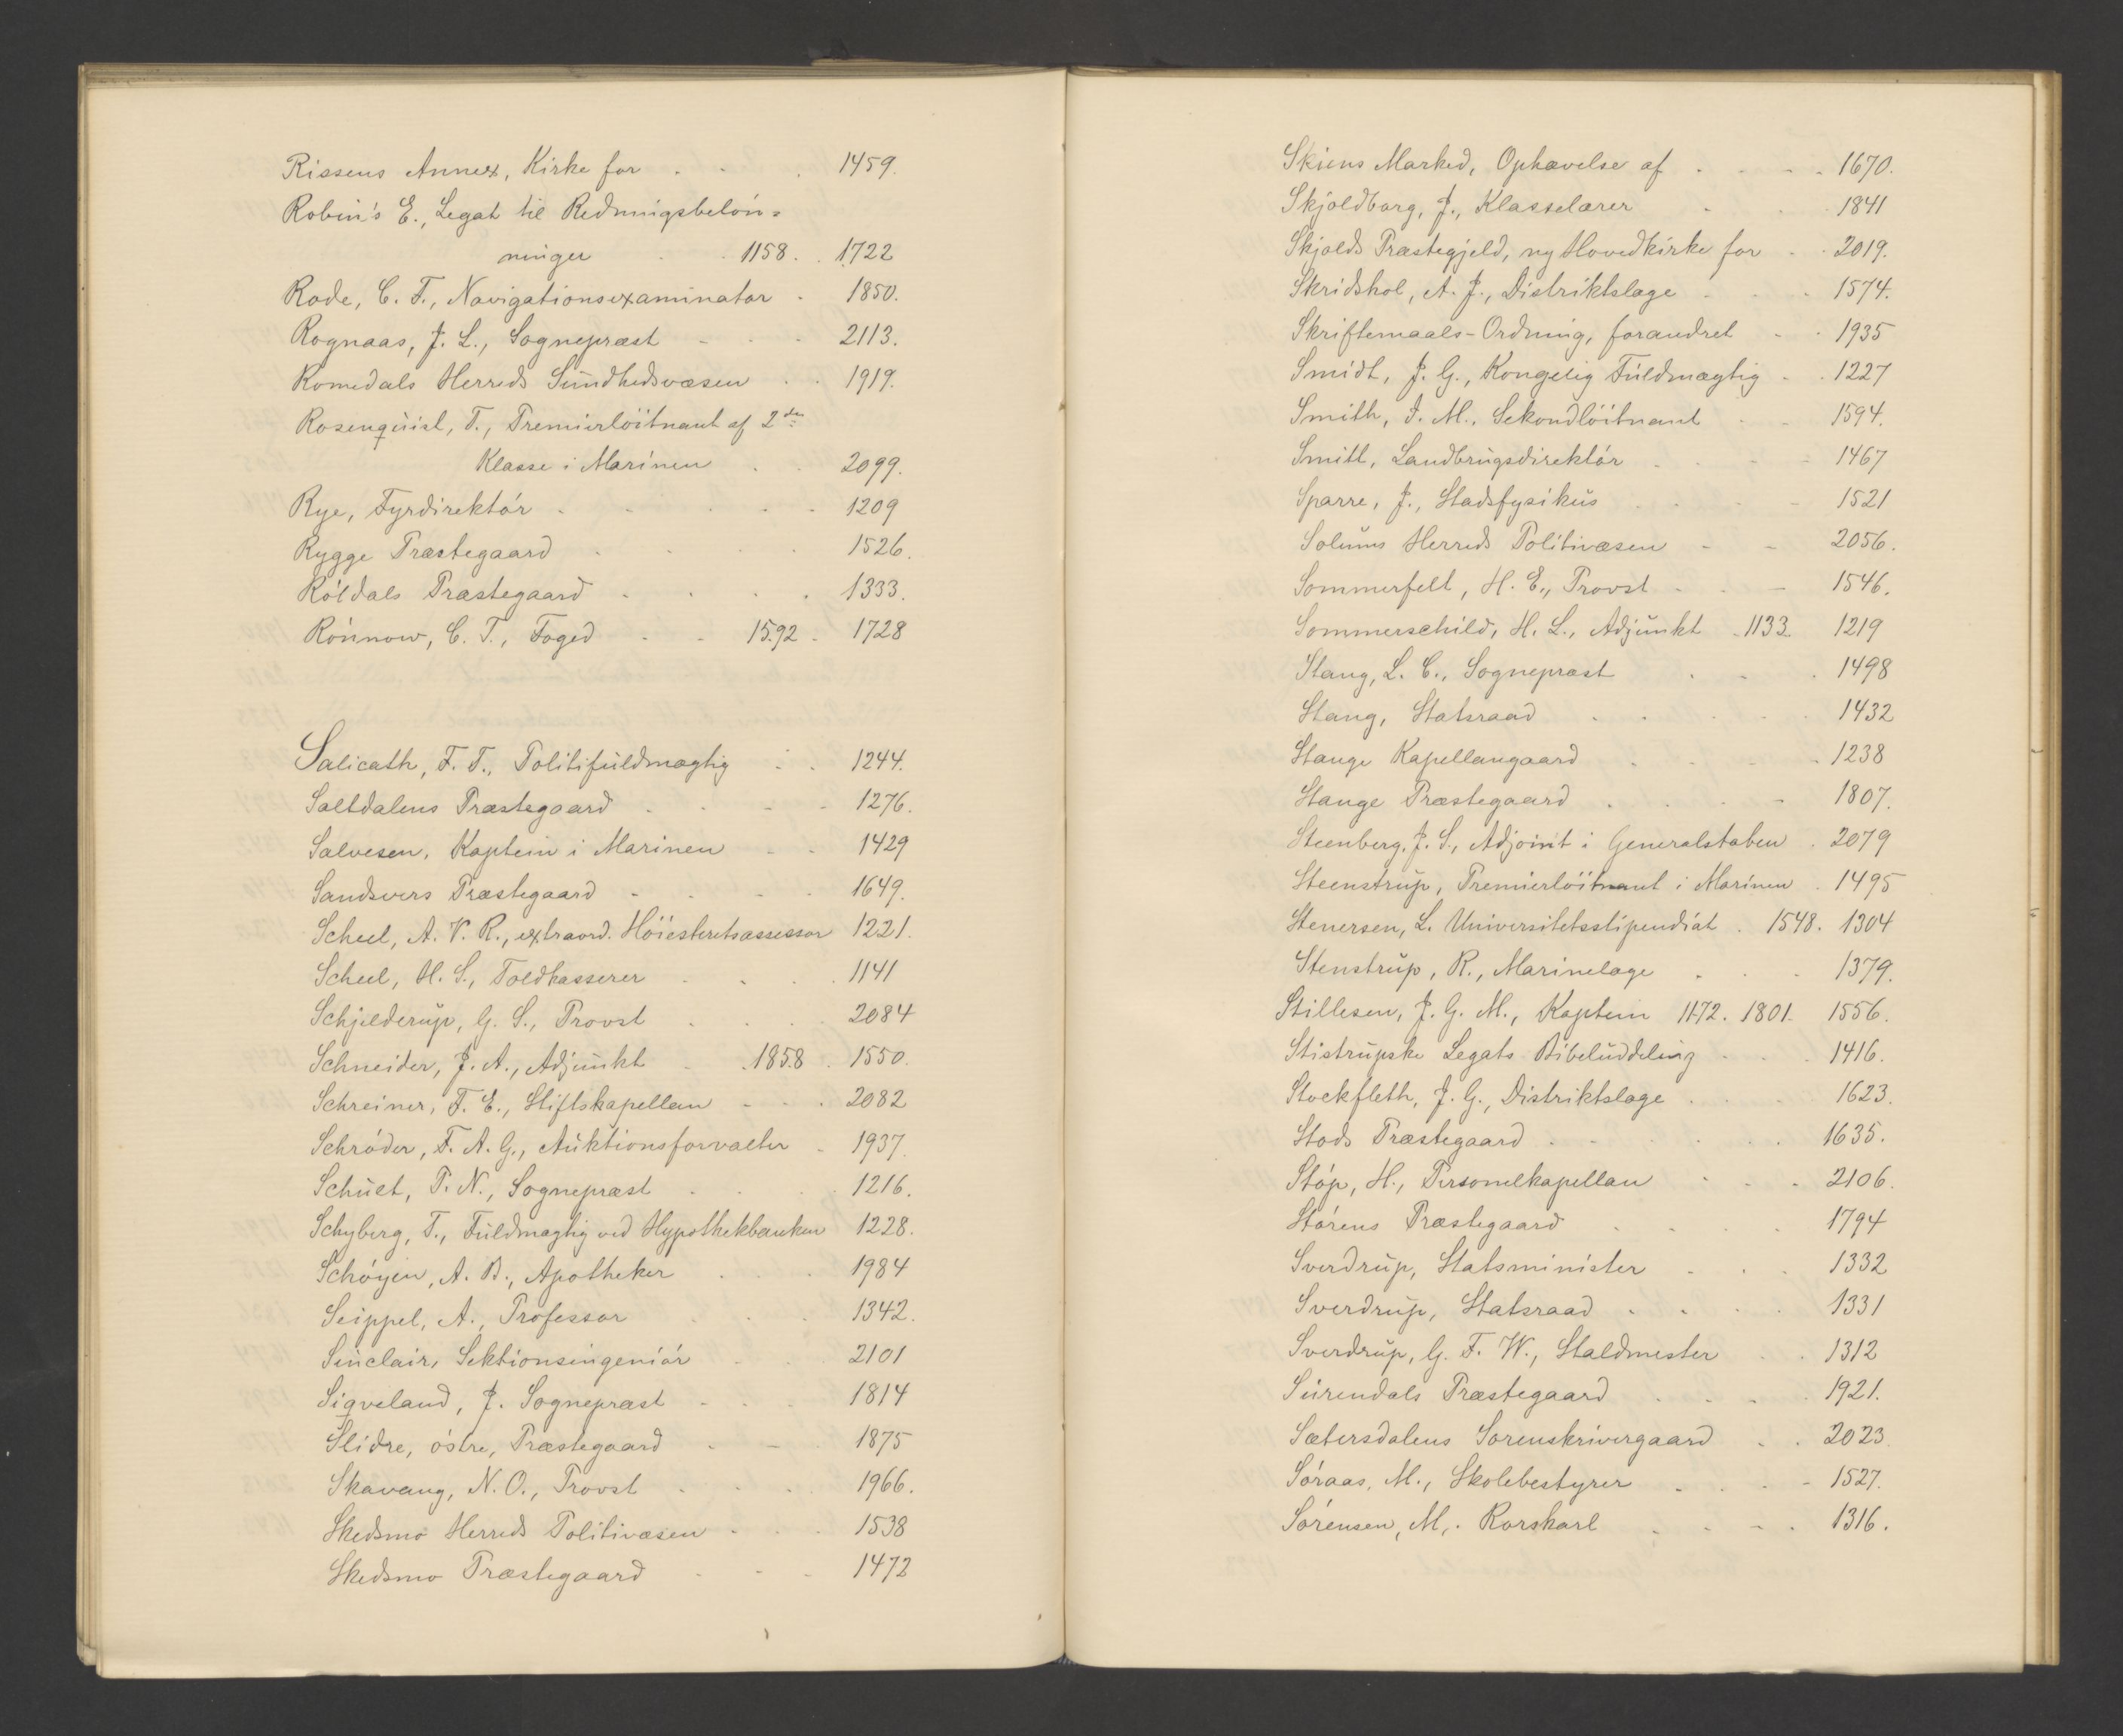 Rissens Annex, Kirke for . . . 1459.
Robin's E., Legat til Redningsbelön=
ninger . . 1158. . 1722
Rode, C. F., Navigationsexaminator . 1850.
Rognaas, J. L., Sognepræst - - - 2113.
Romedals Herreds Sundhedsvæsen . . 1919.
Rosenquist, T., Premierlöitnant af 2den
Klasse i Marinen . . 2099.
Rye, Fyrdirektör - - - - - 1209
Rygge Præstegaard - - - . 1526.
Röldals Præstegaard - . . . 1333.
Rönnow, C. T., Foged - - 1592 - 1728
Salicath, F. T., Politifuldmægtig . . 1244.
Saltdalens Præstegaard . - - - 1276.
Salvesen, Kaptein i Marinen - - 1429
Sandsvers Præstegaard - - - - 1649.
Scheel, A. V. R., extraord. Höiesteretsassessor 1221.
Scheel, H. S., Toldkasserer - . . . 1141
Schjelderup, G. S., Provst . . . . 2084
Schneider, J. A., Adjunkt - .1858 . 1550.
Schreiner, F. E., Stiftskapellan - - . 2082
Schröder, F. A. G., Auktionsforvalter - 1937.
Schuet, P. N., Sognepræst . . . . 1216.
Schyberg, T., Fuldmægtig ved Hypothekbanken 1228.
Schöyen, A. B., Apotheker . . . 1984
Seippel, A., Professor . . . 1342.
Sinclair, Sektionsingeniör - . . 2101
Siqveland, J. Sognepræst - . . 1814
Slidre, östre, Præstegaard - - 1875
Skavang, N. O., Provst . . . . 1966.
Skedsmo Herreds Politivæsen - . . 1538
Skedsmo Præstegaard - - - 1472
Skiens Marked, Ophævelse af . - - . 1670.
Skjoldborg, J., Klasselærer . . . 1841
Skjolds Præstegjeld, ny Hovedkirke for . . 2019.
Skridshol, A. J., Distriktslæge - . . 1574.
Skriftemaals-Ordning, forandret - . 1935
Smidt, J. G., Kongelig Fuldmægtig - . 1227
Smith, J. M., Sekondlöitnant . - 1594.
Smitt, Landbrugsdirektör . . . - 1467
Sparre, J., Stadsfysikus . . . - 1521
Solums Herreds Politivæsen - - 2056.
Sommerfelt, H. E., Provst - . - 1546.
Sommerschild, H. L., Adjunkt . 1133. 1219
Stang, L. C., Sognepræst . - . 1498
Stang, Statsraad . . . . . 1432
Stange Kapellangaard . . . . 1238
Stange Præstegaard . . . - 1807.
Steenberg, J. S., Adjoint i Generalstaben . 2079
Steenstrup, Premierlöitnant i Marinen . 1495
Stenersen, L. Universitetsstipendiat . 1548. 1304
Stenstrup, R., Marinelæge . . - 1379.
Stillesen, J. G. M., Kaptein 1172. 1801. 1556.
Stistrupske Legats Bibeluddeling . . . 1416.
Stockfleth, J. G., Distriktslæge . . . . 1623.
Stods Præstegaard . - . . . . 1635.
Stöp, H., Personelkapellan . . . 2106.
Störens Præstegaard . . . . 1794
Sverdrup, Statsminister - . . 1332
Sverdrup, Statsraad . . . . 1331
Sverdrup, G. F. W., Staldmester . . 1312
Surendals Præstegaard . . . . 1921.
Sætersdalens Sorenskrivergaard . . 2023
Söraas, M., Skolebestyrer . . . - 1527.
Sörensen, M,. Rorskarl . . - . 1316.